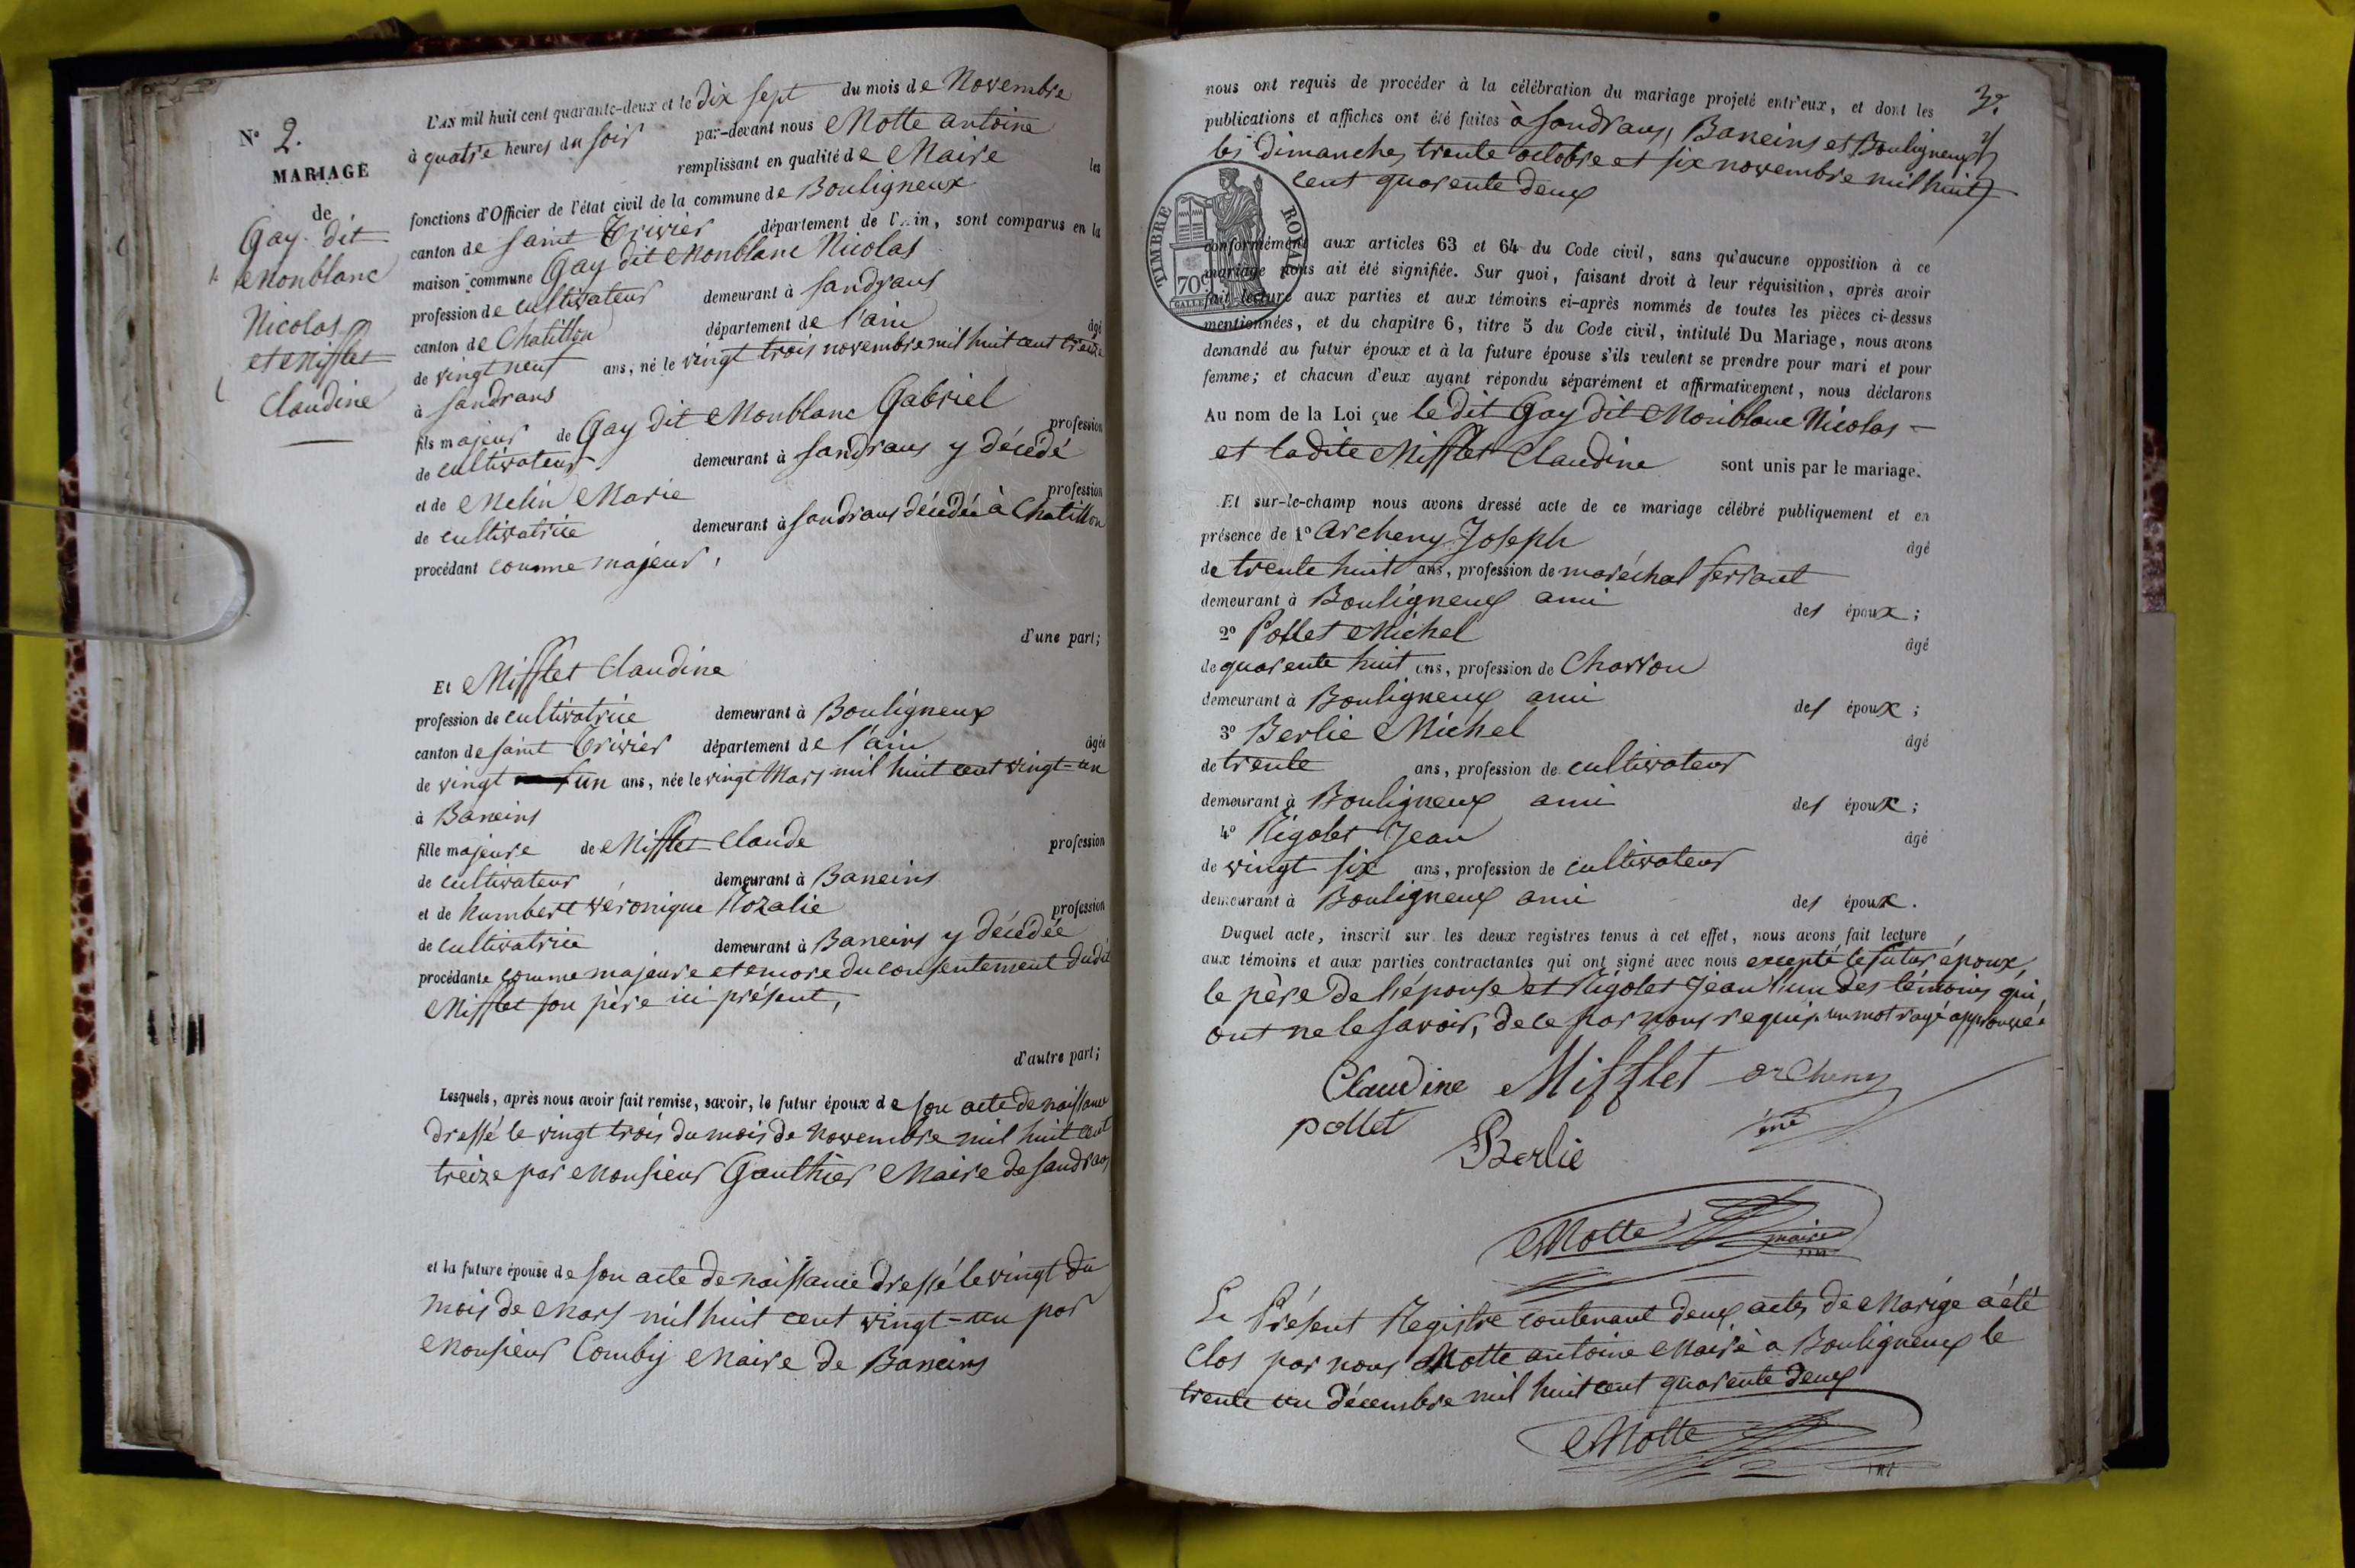 N° 2.
MARIAGE
de
Gay dit
Monblanc
Nicolas
et Mifflet
Claudine
L'AN mil huit cent quarante-deux et le dix sept du mois de Novembre
à quatre heures du soir par-devant nous Motte antoine
remplissant en qualité de Maire les
fonctions d'Officier de l'état civil de la commune de Bouligneux
canton de saint Trivier département de l'Ain, sont comparus en la
maison commune Gay dit Monblanc Nicolas
profession de cultivateur demeurant à sandrans
canton de Chatillon département de l'ain âgé
de vingt neuf ans, né le vingt trois novembre mil huit cent treize
à sandrans
fils majeur de Gay dit Monblanc Gabriel profession
de cultivateur demeurant à sandrans y décédé
et de Melin Marie profession
de cultivatrice demeurant à sandrans décédée à Chatillon
procédant comme majeur,
d'une part;
Et Mifflet Claudine
profession de cultivatrice demeurant à Bouligneux
canton de saint Trivier département de l'ain âgée
de vingt un ans, née le vingt Mars mil huit cent vingt-un
à Baneins
fille majeure de Mifflet Claude profession
de cultivateur demeurant à Baneins
et de humbert véronique Rozalie profession
de cultivatrice demeurant à Baneins y décédée
procédante comme majeure et encore du consentement dudit
Mifflet son père ici présent,
d'autre part;
Lesquels, après nous avoir fait remise, savoir, le futur époux de son acte de naissance
dressé le vingt trois du mois de Novembre mil huit cent
treize par Monsieur Gauthier Maire de sandrans
et la future épouse de son acte de naissance dressé le vingt du
mois de Mars mil huit cent vingt-un par
Monsieur Comby Maire de Baneins
3e
nous ont requis de procéder à la célébration du mariage projeté entr'eux, et dont les
publications et affiches ont été faites à sandrans, Baneins et Bouligneux
les Dimanches trente octobre et six novembre mil huit
cent quarente deux
TIMBRE ROYAL
70c
conformément aux articles 63 et 64 du Code civil, sans qu'aucune opposition à ce
mariage nous ait été signifiée. Sur quoi, faisant droit à leur réquisition, après avoir
fait lecture aux parties et aux témoins ci-après nommés de toutes les pièces ci-dessus
mentionnées, et du chapitre 6, titre 5 du Code civil, intitulé Du Mariage, nous avons
demandé au futur époux et à la future épouse s'ils veulent se prendre pour mari et pour
femme; et chacun d'eux ayant répondu séparément et affirmativement, nous déclarons
Au nom de la Loi que le dit Gay dit Monblanc Nicolas
et ladite Mifflet Claudine sont unis par le mariage.
Et sur-le-champ nous avons dressé acte de ce mariage célébré publiquement et en
présence de 1° Archeny Joseph âgé
de trente huit ans, profession de maréchal ferrant
demeurant à Bouligneux ami des époux;
2° Pollet Michel âgé
de quarente huit ans, profession de Charron
demeurant à Bouligneux ami des époux;
3° Berlie Michel âgé
de trente ans, profession de cultivateur
demeurant à Bouligneux ami des époux;
4° Rigolet Jean âgé
de vingt six ans, profession de cultivateur
demeurant à Bouligneux ami des époux.
Duquel acte, inscrit sur les deux registres tenus à cet effet, nous avons fait lecture
aux témoins et aux parties contractantes qui ont signé avec nous excepté le futur époux,
le père de l'épouse et Rigolet Jean l'un des témoins qui,
ont ne le savoir, de ce par nous requis. un mot rayé approuvé
Claudine Mifflet archeny
pollet
Berlie
Motte maire
Le Présent Registre contenant deux actes de Marige a été
Clos par nous Motte antoine Maire à Bouligneux le
trente un décembre mil huit cent quarente deux
Motte